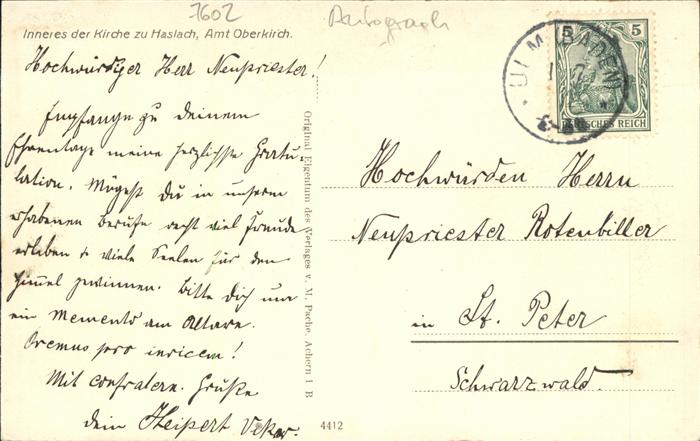 7602
Autograph
Inneres der Kirche zu Haslach, Amt Oberkirch.
Hochwürdiger Herr Neupriester!
Empfange zu deinem
Ehrentage meine herzlichste Gratu-
lation. Mögest Du in unserem
erhabenen Berufe recht viel Freude
erleben & viele Seelen für den
Himmel gewinnen. Bitte Dich um
ein Memento am Altare.
Oremus pro invicem!
Mit confratern. Gruße
dein Heipert Vikar.
Original Eigentum des Verlages v. M. Pache, Achern i B
4412
ULM (BADEN)
5 5
DEUTSCHES REICH
Hochwürden Herrn
Neupriester Rotenbiller
in St. Peter
Schwarzwald.